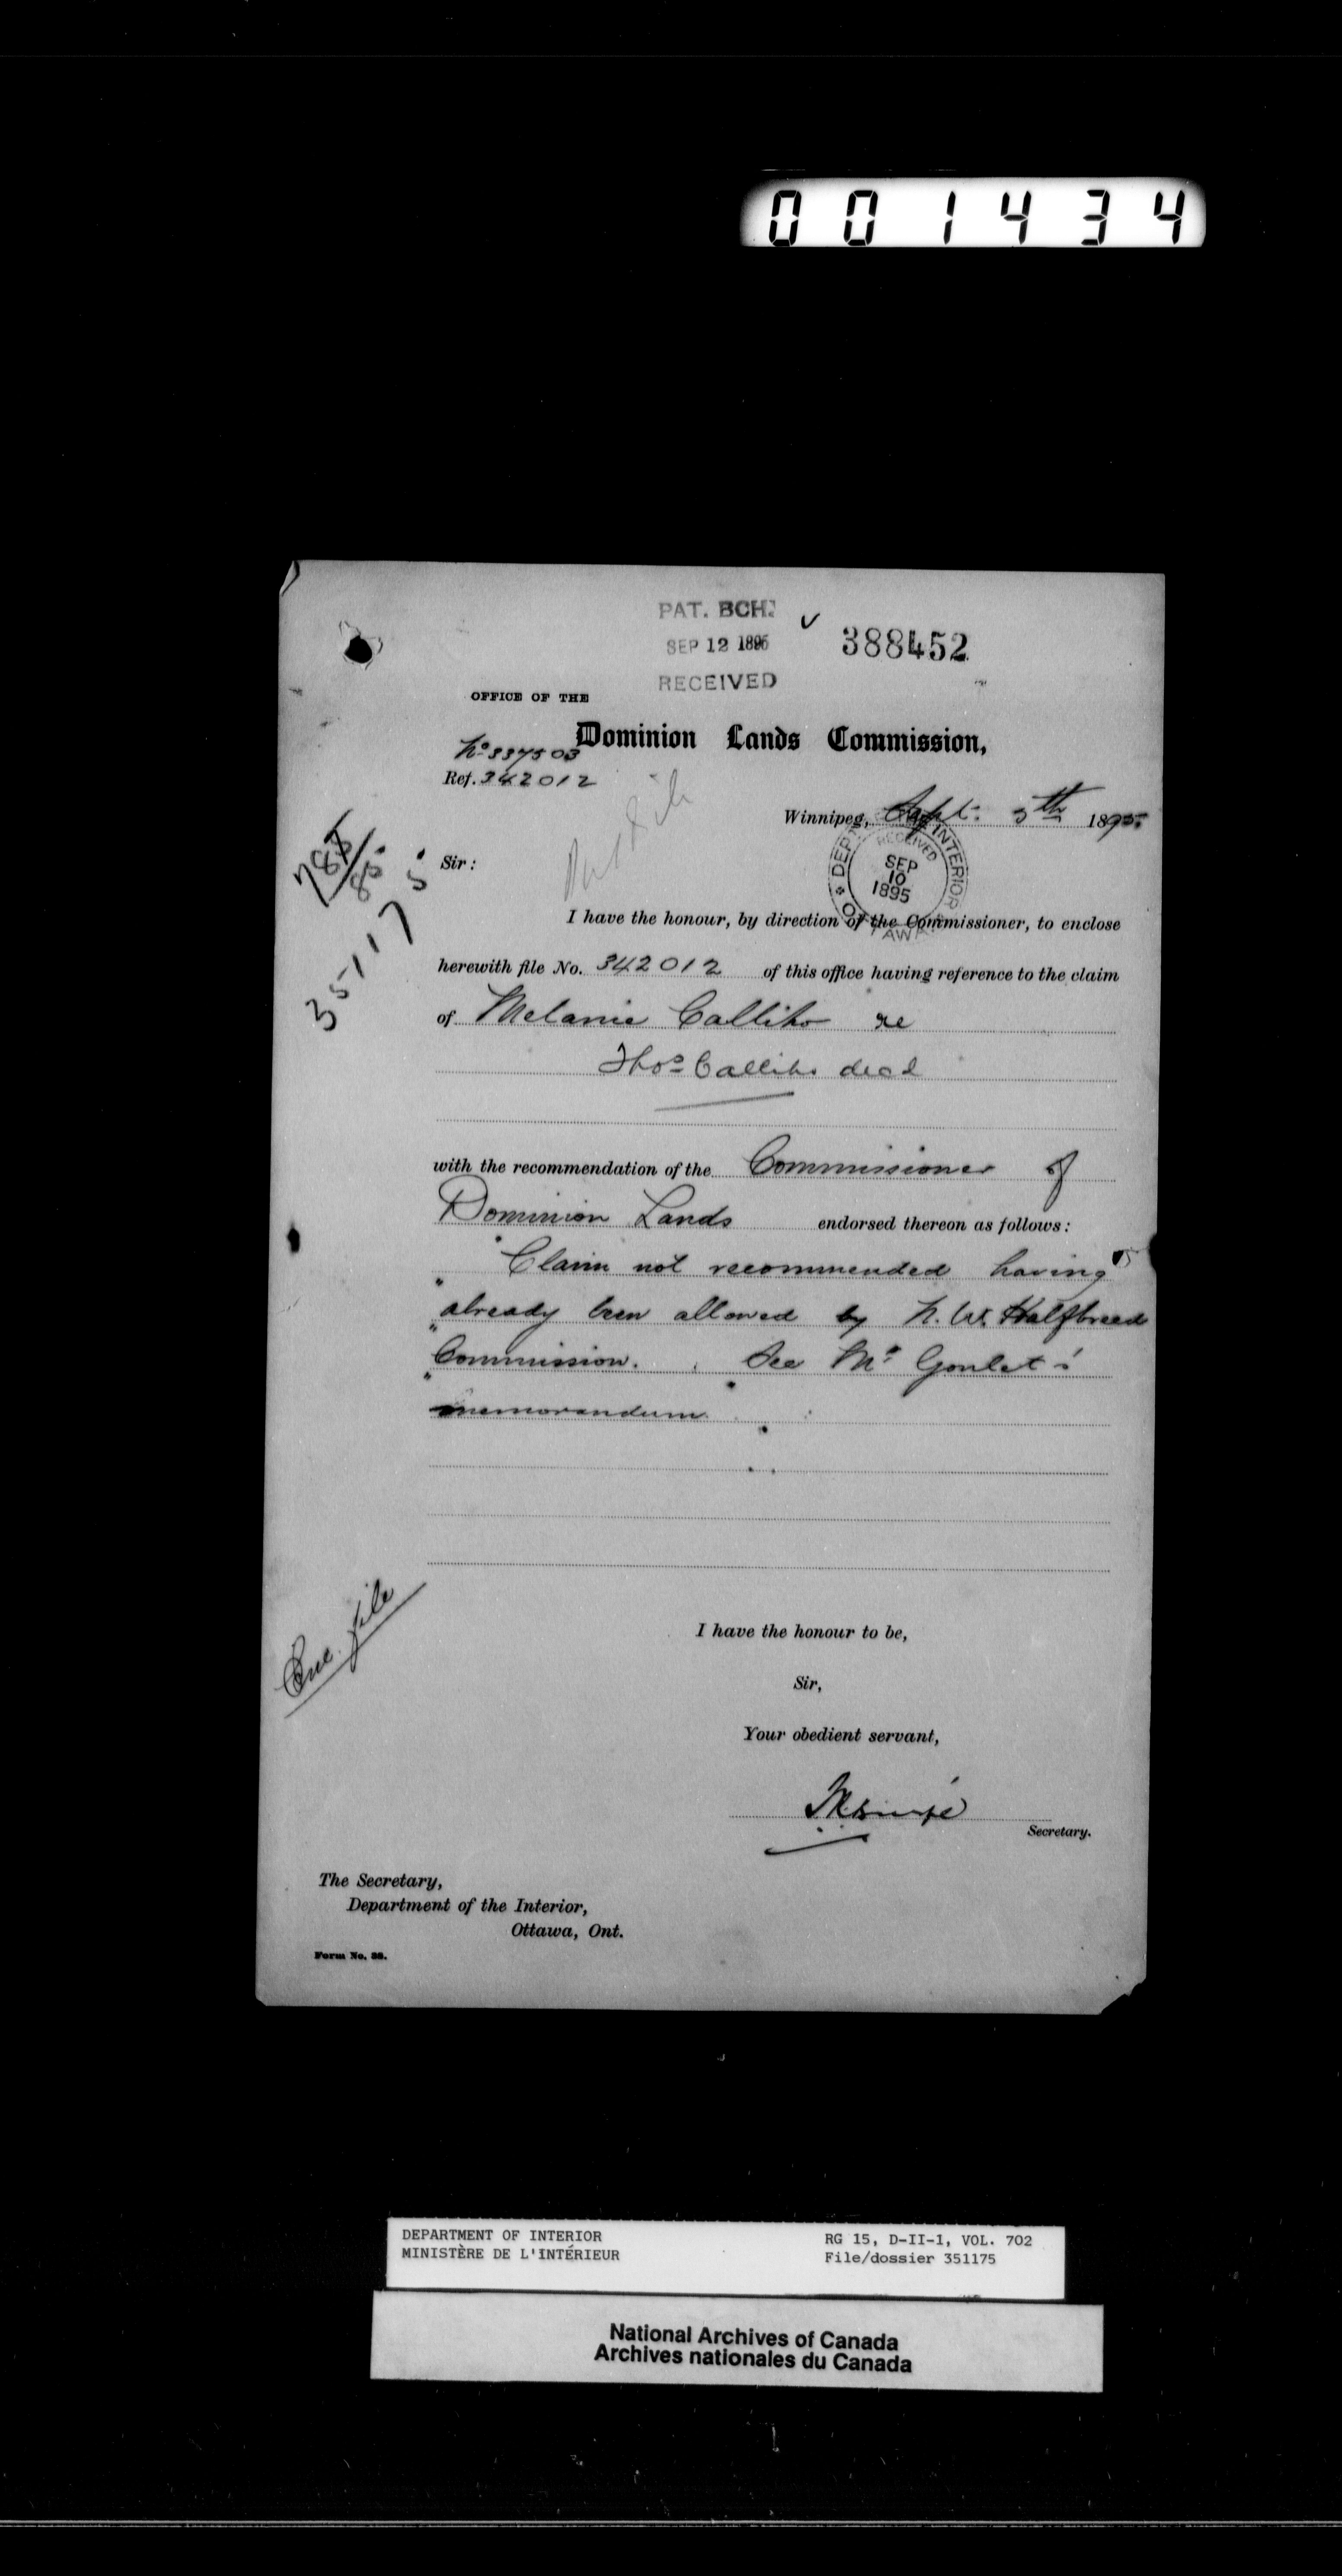 001434
PAT. BCH.
SEP 12 1895
RECEIVED
388452
OFFICE OF THE
Dominion Lands Commission,
No 337503
Ref. 342012
Winnipeg, Sept. 5th 1895
DEPT OF INTERIOR
RECEIVED
SEP
10
1895
OTTAWA
351175
Sir:
I have the honour, by direction of the Commissioner, to enclose
herewith file No. 342012 of this office having reference to the claim
of Melanie Calliho re
Thos Calliho decd
with the recommendation of the Commissioner of
Dominion Lands endorsed thereon as follows:
" Claim not recommended having
" already been allowed by N. W. Halfbreed
" Commission. See Mr Goulet's
memorandum
Enc. file
I have the honour to be,
Sir,
Your obedient servant,
Secretary.
The Secretary,
Department of the Interior,
Ottawa, Ont.
Form No. 38.
DEPARTMENT OF INTERIOR
MINISTÈRE DE L'INTÉRIEUR
RG 15, D-II-1, VOL. 702
File/dossier 351175
National Archives of Canada
Archives nationales du Canada